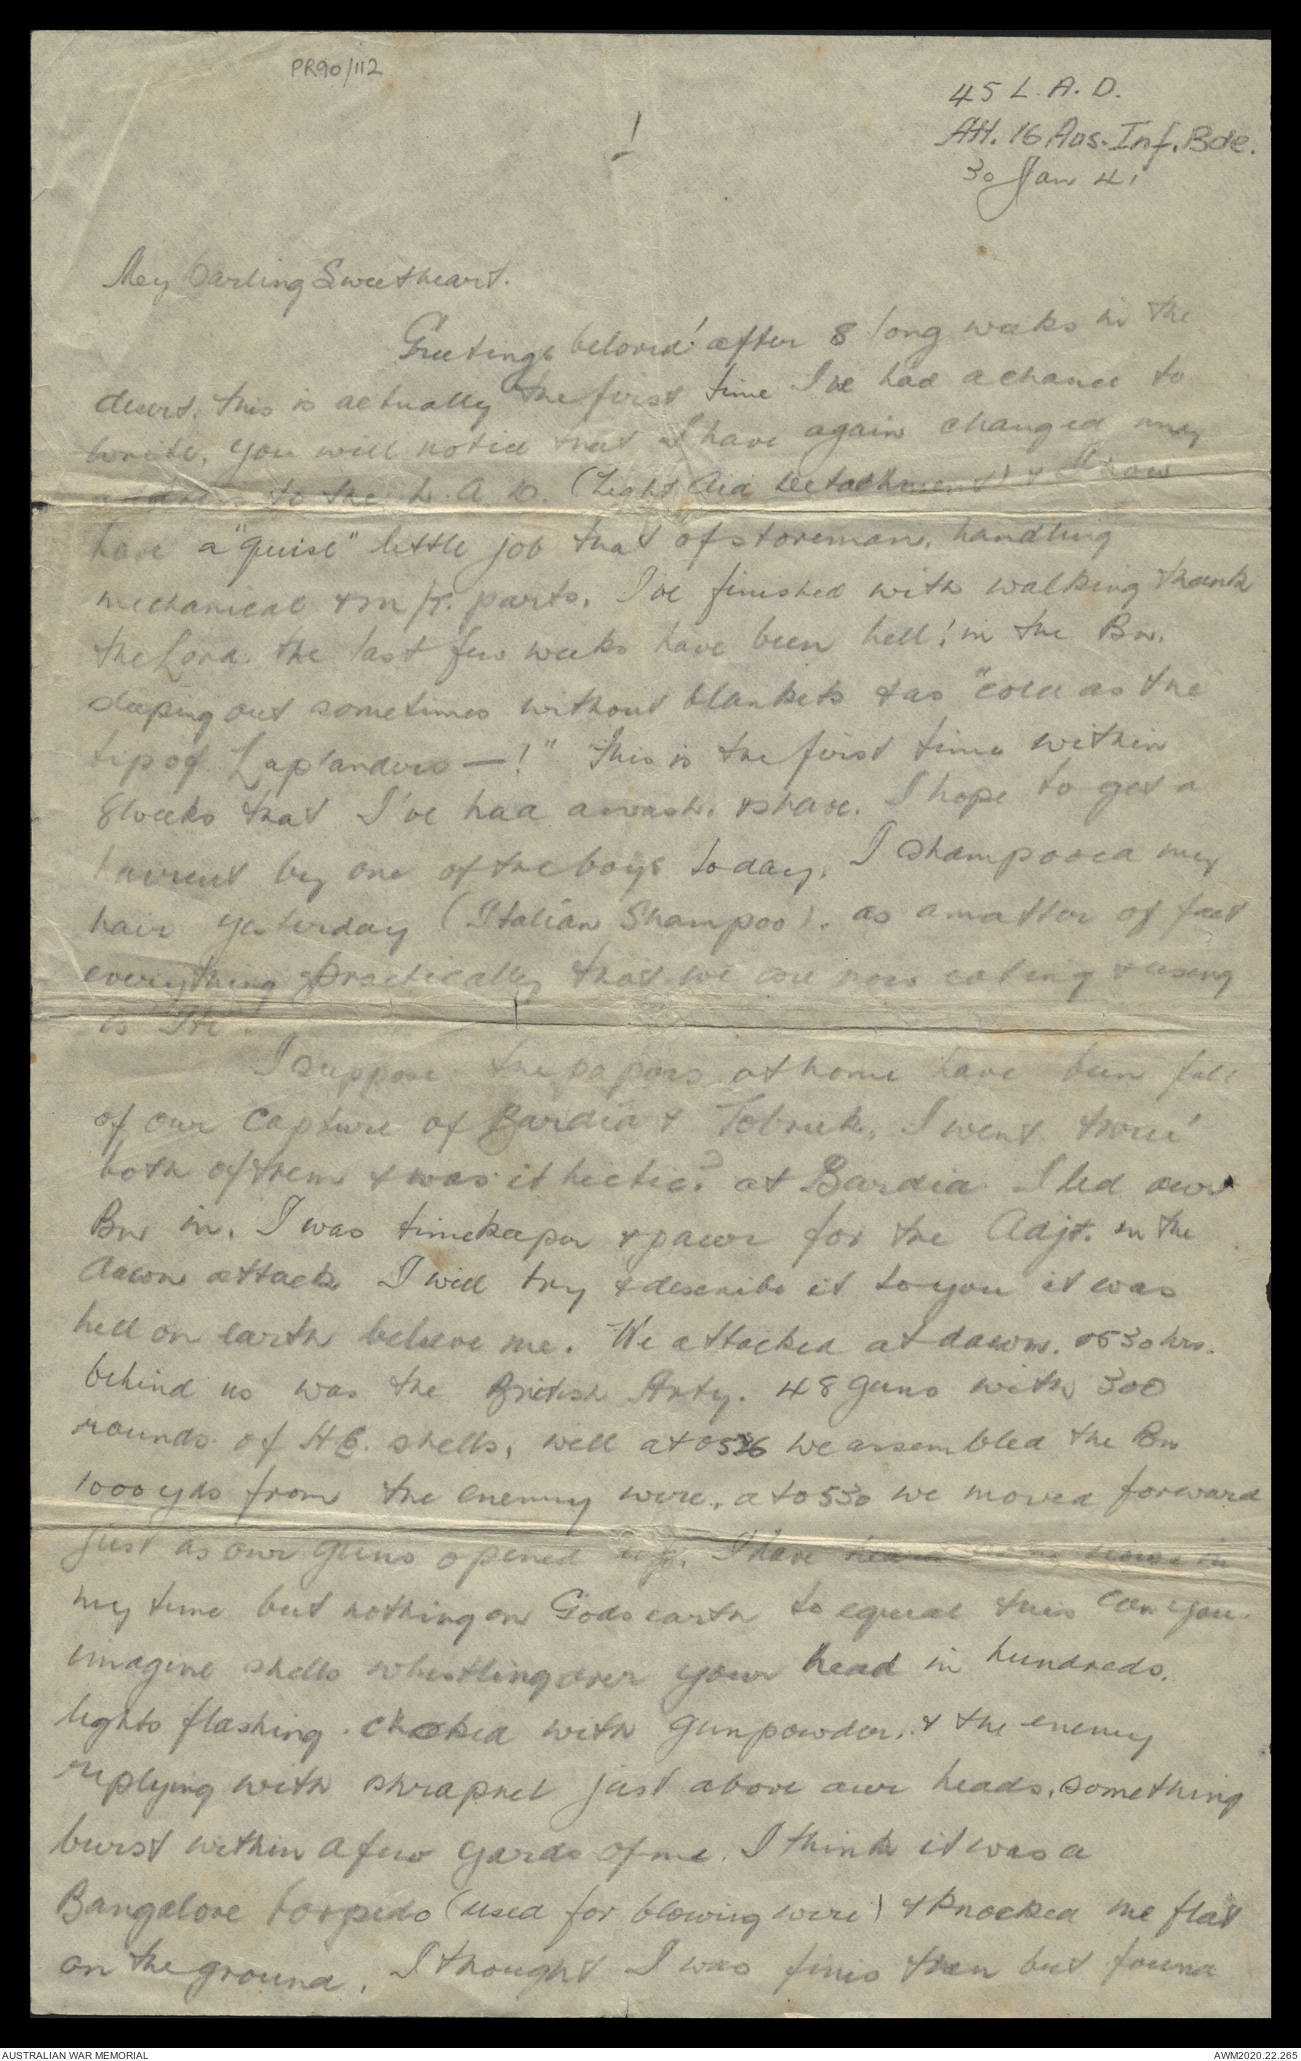 PR90/112
45 L.A.D.
Att. 16 Aus. Inf. Bde.
30 Jan 41
1
My Darling Sweetheart.
Greetings beloved! after 8 long weeks in the
desert. this is actually the first time I've had a chance to
write, you will notice that I have again changed my
address to the L.A.D. (Light Aid Detachment) & I now
have a "quise" little job that of storeman, handling
mechanical & m/T. parts. I've finished with walking thank
the Lord. the last few weeks have been hell! in the Bn.
sleeping out sometimes without blankets & as "cold as the
tip of Laplanders —!" This is the first time within
8 weeks that I've had a wash. & shave. I hope to get a
haircut by one of the boys today. I shampooed my
hair yesterday (Italian Shampoo). as a matter of fact
everything practically that we are now eating & using
is "Iti".
I suppose the papers at home have been full
of our capture of Bardia & Tobruk, I went thro'
both of them & was it hectic? at Bardia I led our
Bn in. I was timekeeper & pacer for the Adjt. in the
dawn attack I will try & describe it to you it was
hell on earth believe me. We attacked at dawn. 0530 hrs.
behind us was the British Arty. 48 guns with 300
rounds of HE. shells, well at 0526 we assembled the Bn
1000 yds from the enemy wire, at 0530 we moved forward
just as our guns opened up. I have heard some in
my time but nothing on Gods earth to equal this can you
imagine shells whistling over your head in hundreds.
lights flashing. choked with gunpowder. & the enemy
replying with shrapnel just above our heads, something
burst within a few yards of me. I think it was a
Bangalore torpedo (used for blowing wire) & knocked me flat
on the ground. I thought I was finis then but found
AUSTRALIAN WAR MEMORIAL
AWM2020.22.265